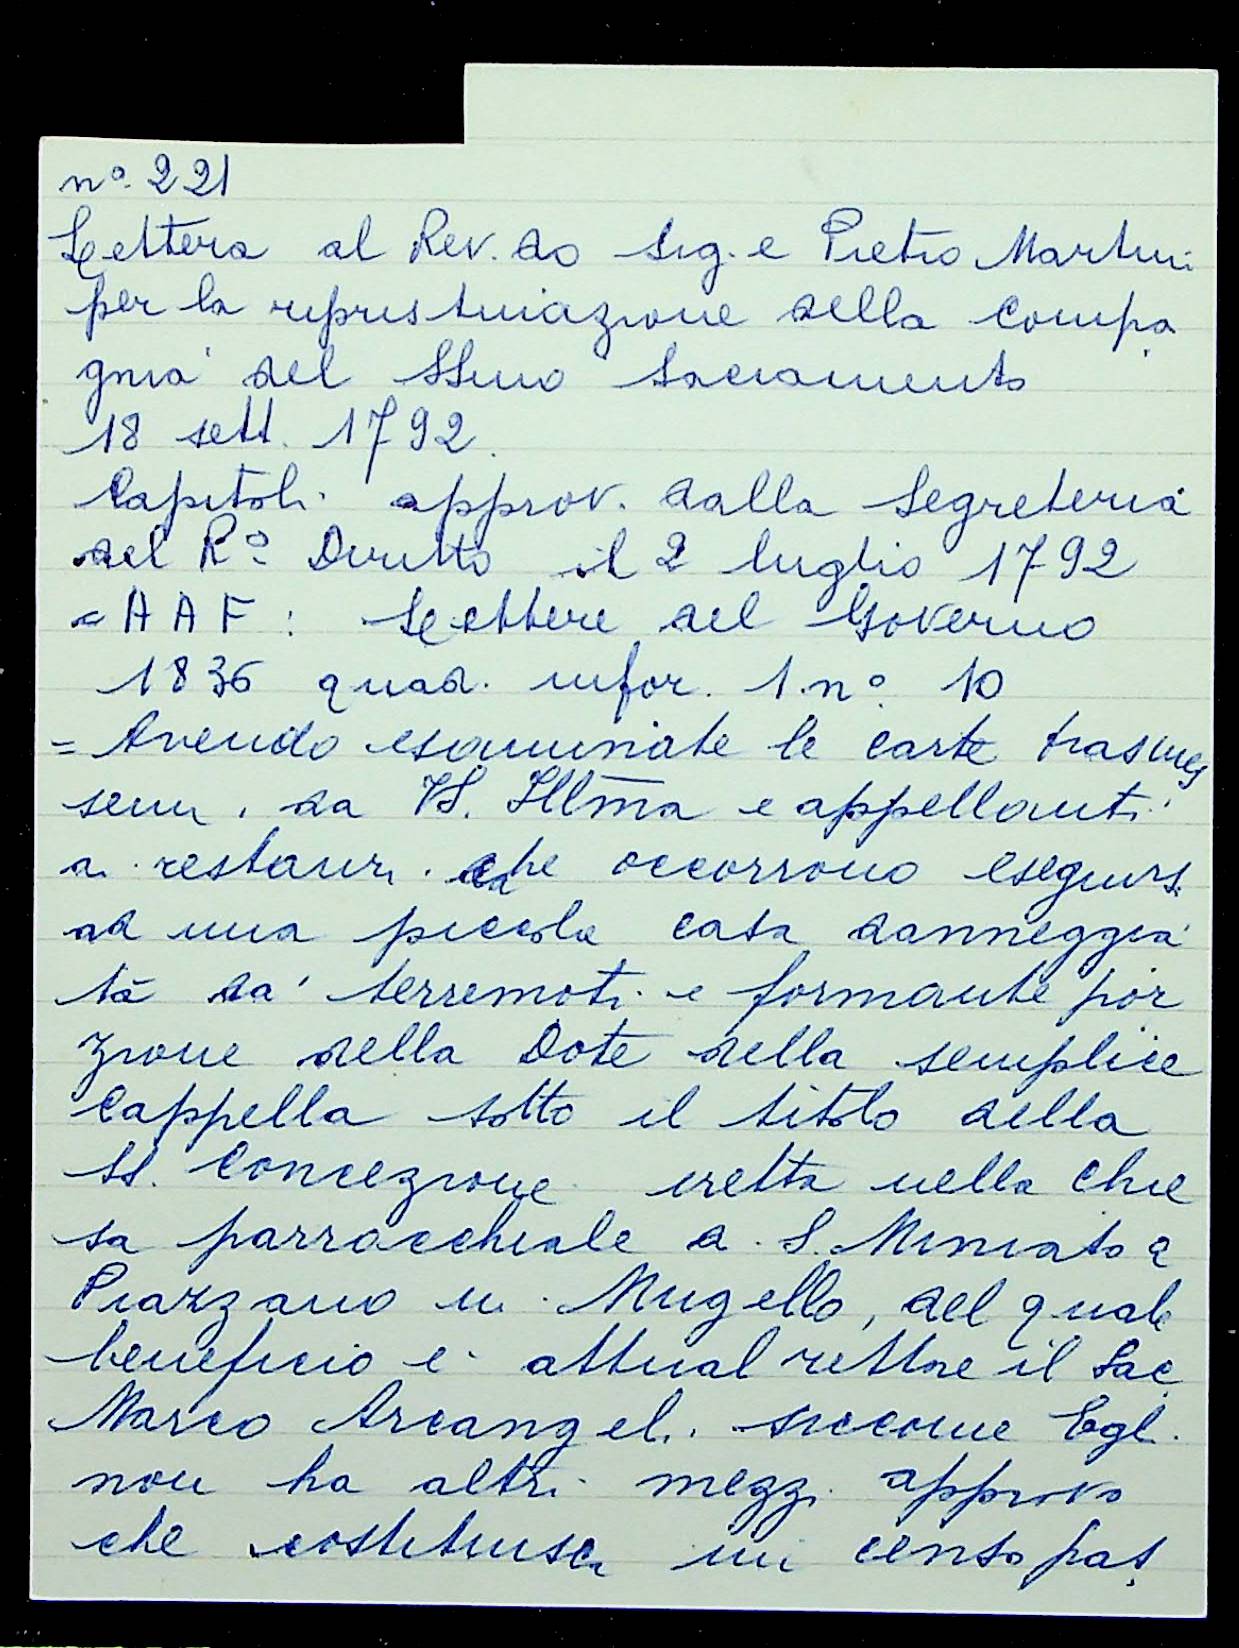 nº. 221
Lettera al Rev.do Sig.e Pietro Martini
per la ripristinazione della Compa
gnia del SSmo Sacramento
18 sett. 1792.
Capitoli approv. dalla Segreteria
del Rº Diritto il 2 luglio 1792
= A A F : Lettere del Governo
1836 quad. infor. 1. nº 10
= Avendo esaminate le carte trasmes
semi da VS. Illma e appellanti
a restauri che occorrono eseguirsi
ad una piccola casa danneggia
ta da' terremoti e formante por
zione della Dote della semplice
Cappella sotto il titolo della
SS. Concezione eretta nella Chie
sa parrocchiale a S. Miniato a
Piazzano in Mugello, del quale
beneficio e' attual rettore il Sac.
Marco Arcangeli. siccome Egli
non ha altri mezzi approvo
che costituisca un censo pas